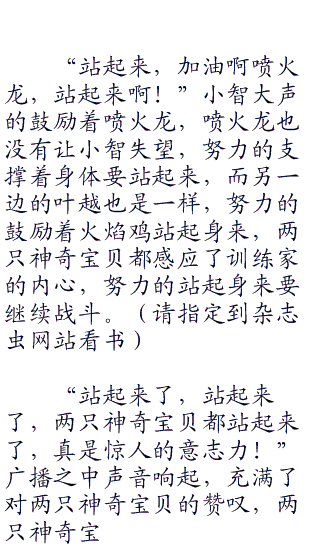 “站起来，加油啊喷火
龙，站起来啊！”小智大声
的鼓励着喷火龙，喷火龙也
没有让小智失望，努力的支
撑着身体要站起来，而另一
边的叶越也是一样，努力的
鼓励着火焰鸡站起身来，两
只神奇宝贝都感应了训练家
的内心，努力的站起身来要
继续战斗。（请指定到杂志
虫网站看书）
“站起来了，站起来
了，两只神奇宝贝都站起来
了，真是惊人的意志力！”
广播之中声音响起，充满了
对两只神奇宝贝的赞叹，两
只神奇宝